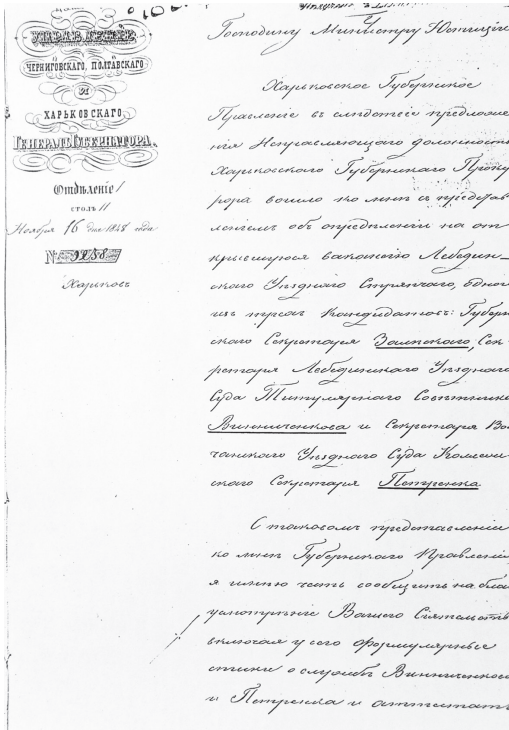 УПРАВЛЕНІЕ
ЧЕРНИГОВСКАГО, ПОЛТАВСКАГО
И
ХАРЬКОВСКАГО
ГЕНЕРАЛЪ ГУБЕРНАТОРА.
Отдѣленіе 1
СТОЛЪ 11
Ноября 16 дня 1848 года
№ 9258
Харьковъ
Господину Министру Юстиціи
Харьковское Губернское
Правленіе въ слѣдствіе предложе
нія Исправляющаго должность
Харьковскаго Губернскаго Проку
рора вошло ко мнѣ съ представ
леніемъ объ опредѣленіи на от
крывшуюся вакансію Лебедин_
скаго Уѣзднаго Стряпчаго, одного
изъ трехъ Кандидатовъ: Губерн
скаго Секретаря Залѣскаго, Сек
ретаря Лебединскаго Уѣзднаго
Суда Титулярнаго Совѣтника
Винниченкова и Секретаря Во
чанскаго Уѣзднаго Суда Коллеж
скаго Секретаря Петренка.
О таковомъ представленіи
ко мнѣ Губернскаго Правленія
я имѣю честь сообщить на бла
усмотрѣніе Вашего Сіятельств
включая у сего формулярные
списки о службѣ Винниченков
и Петренка и аттестатъ